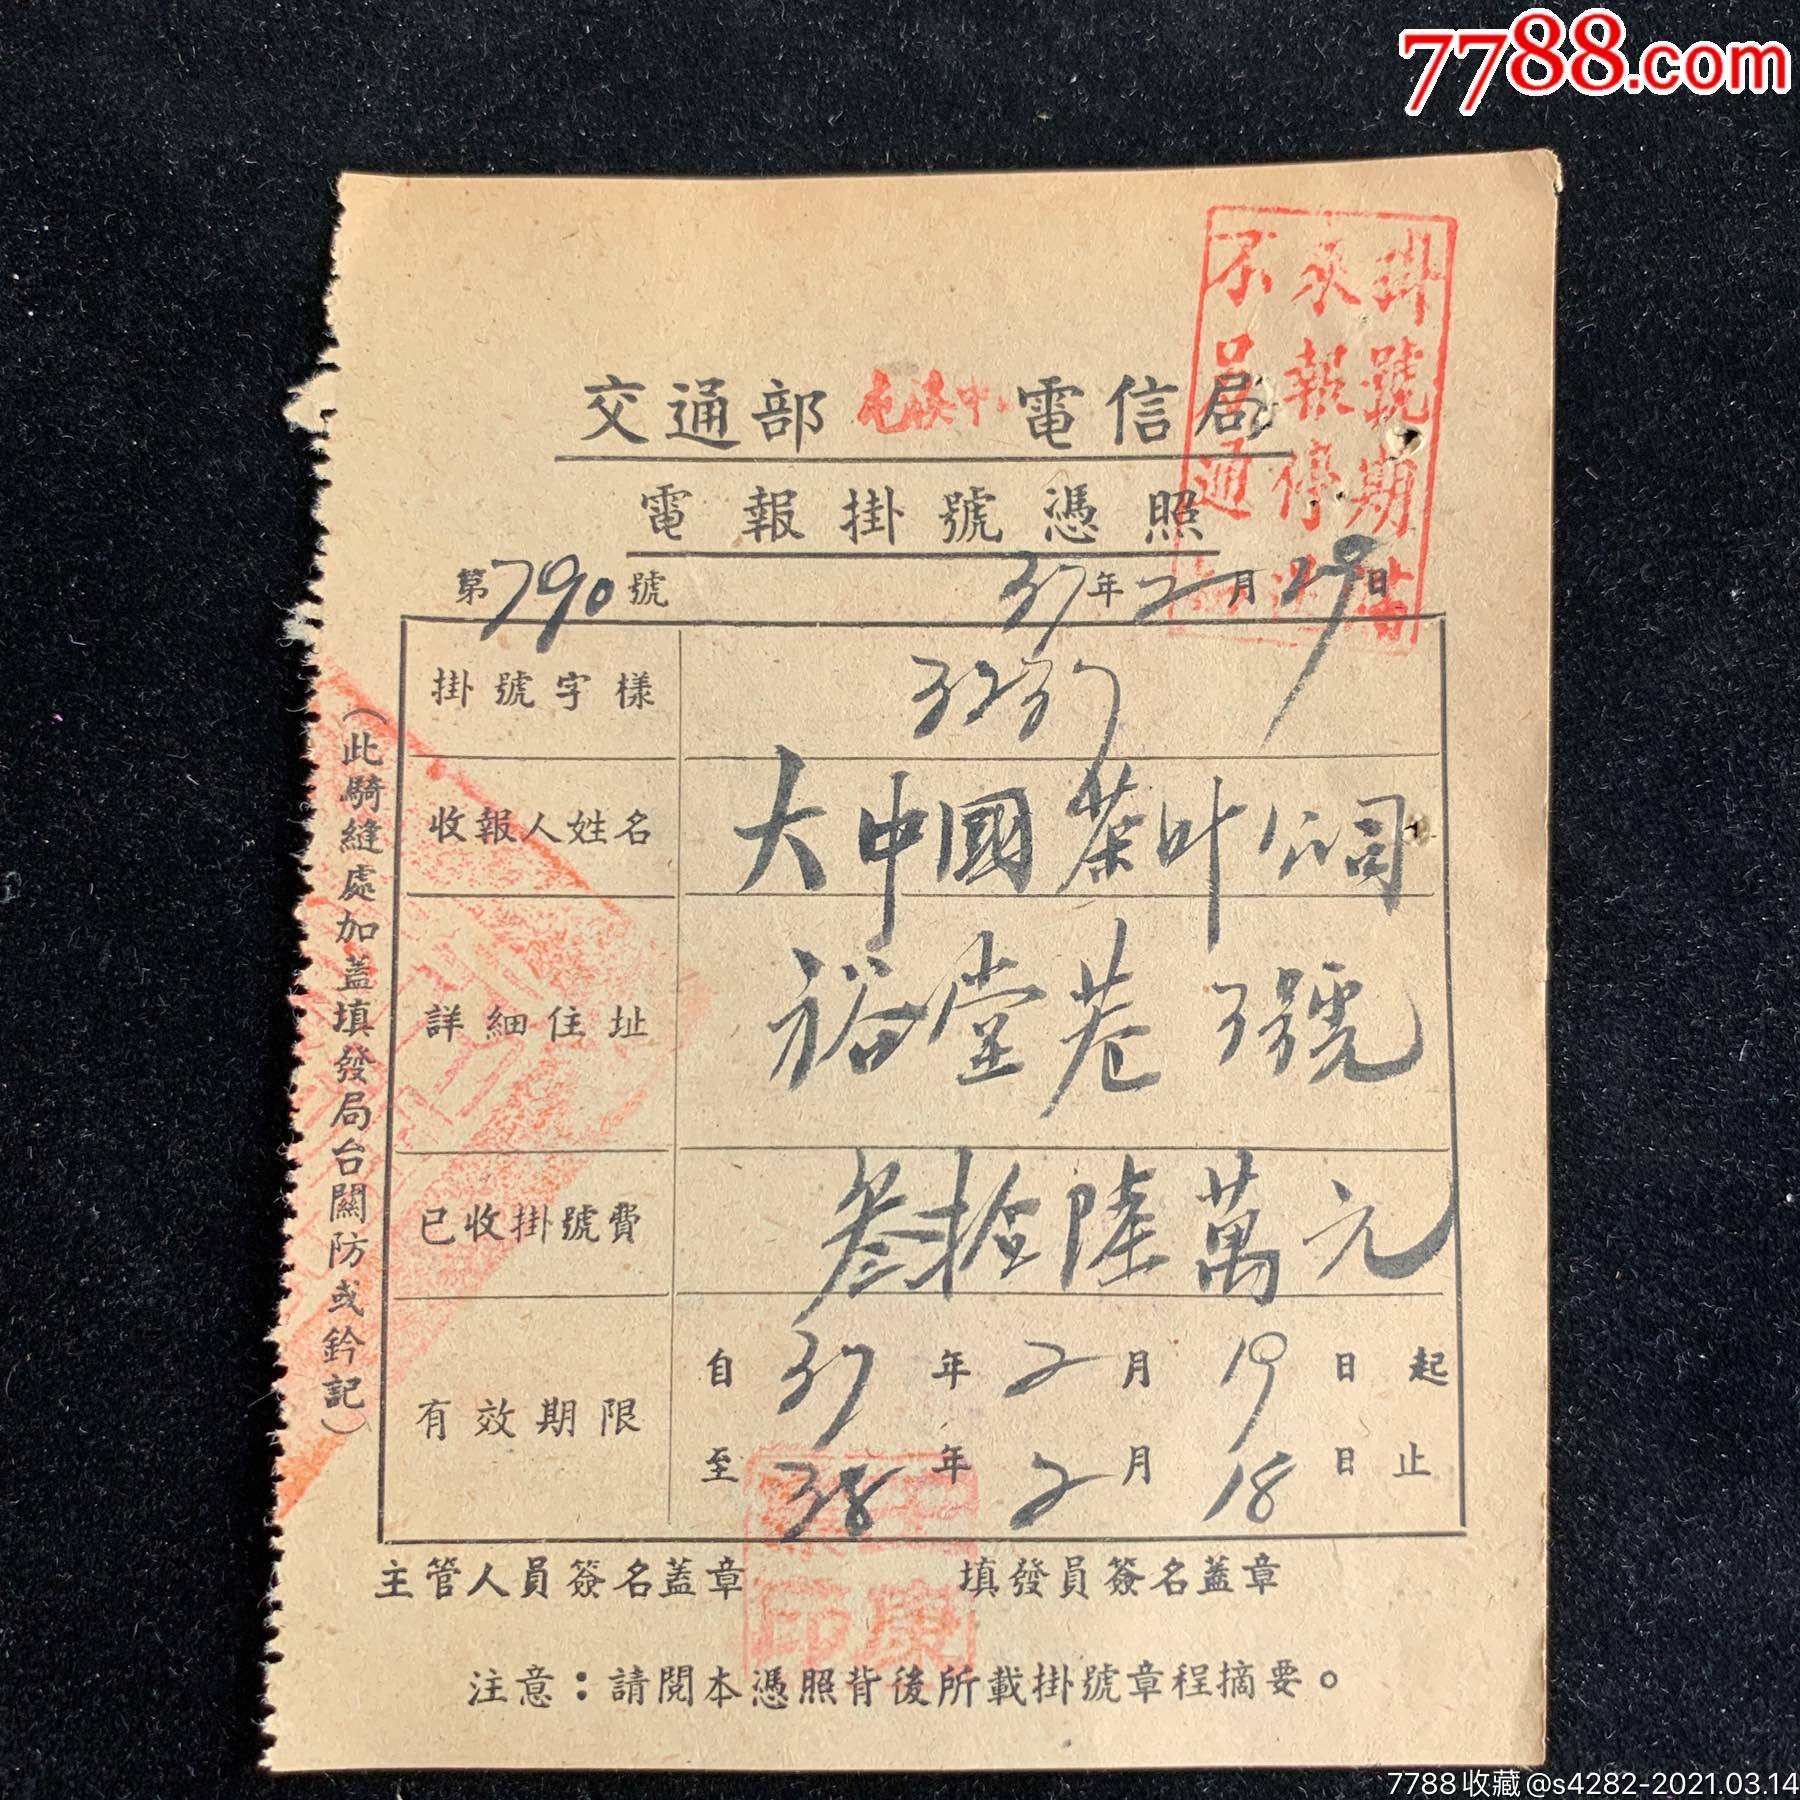 7788.com
掛號期滿
來報停止
不另通
交通部屯溪電信局
電報掛號憑照
第790號 37年2月19日
掛號字樣 3237
收報人姓名 大中國茶叶公司
詳細住址 裕堂巷3號
已收掛號費 叁拾陸萬元
有效期限 自37年2月19日起
至38年2月18日止
(此騎縫處加蓋填發局台關防或鈐記)
主管人員簽名蓋章 填發員簽名蓋章
注意：請閱本憑照背後所載掛號章程摘要。
7788收藏@s4282-2021.03.14